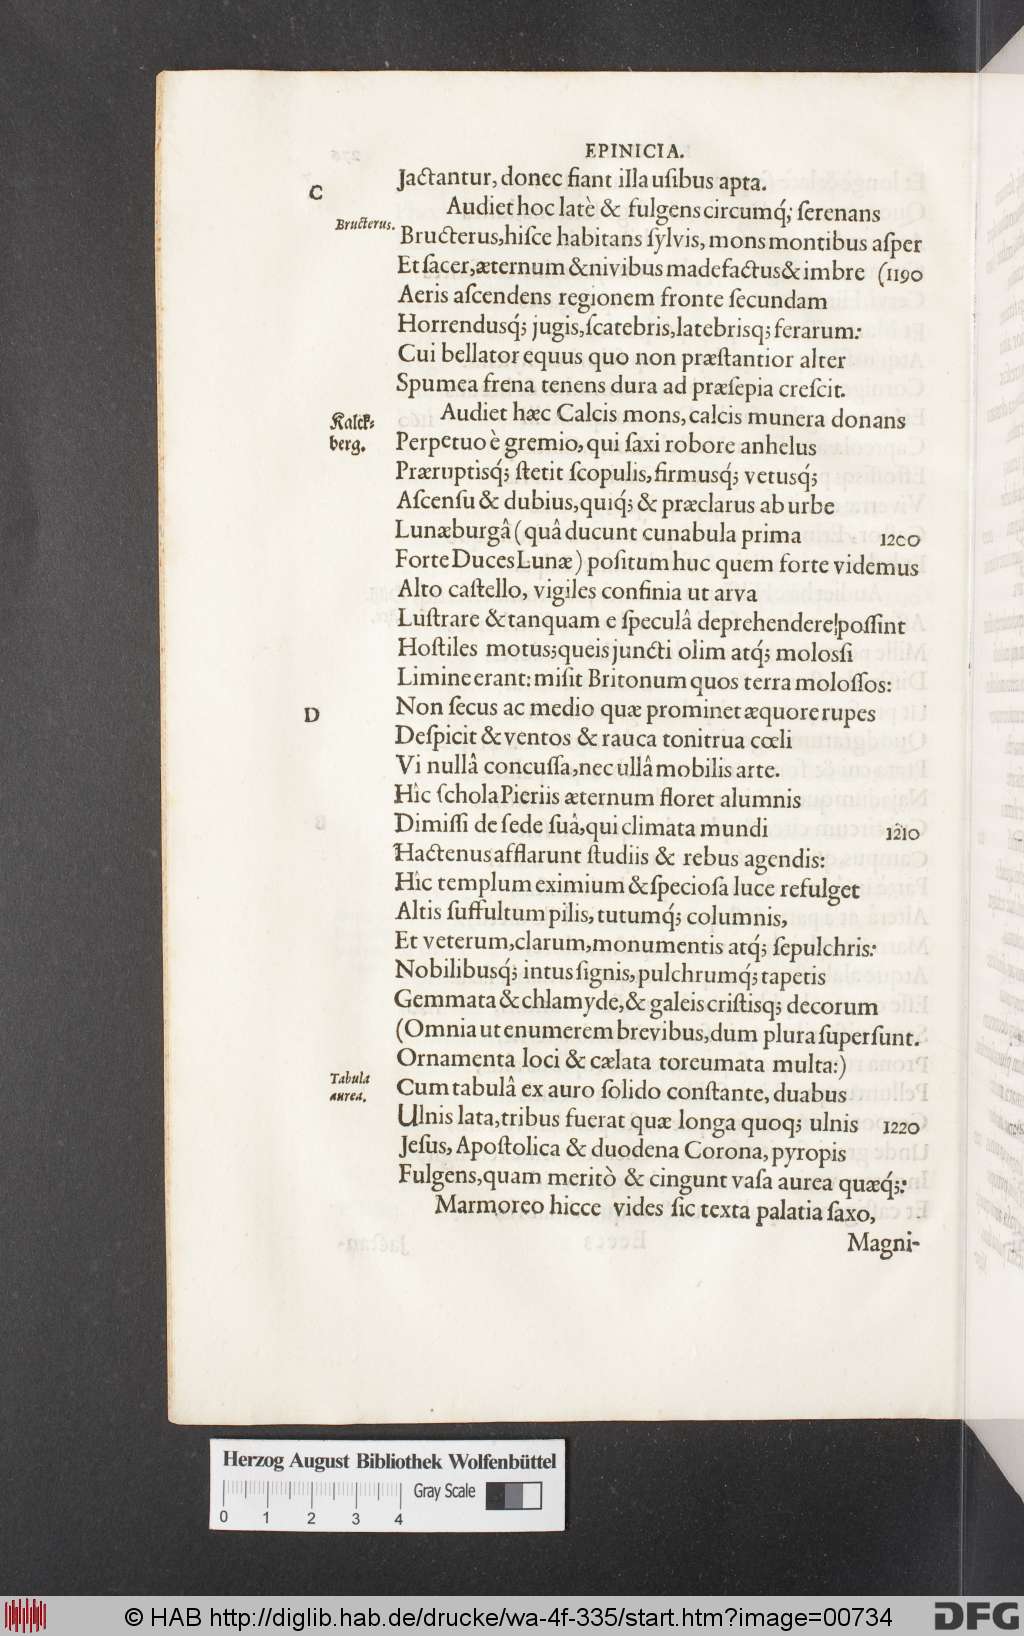 EPINICIA.
C
Jactantur, donec fiant illa uſibus apta.
Audiet hoc latè & fulgens circumq́; ſerenans
Bructerus.
Bructerus, hiſce habitans ſylvis, mons montibus aſper
Et ſacer, æternum & nivibus madefactus & imbre (1190
Aeris aſcendens regionem fronte ſecundam
Horrendusq́; jugis, ſcatebris, latebrisq; ferarum:
Cui bellator equus quo non præſtantior alter
Spumea frena tenens dura ad præſepia creſcit.
Audiet hæc Calcis mons, calcis munera donans
Kalck-
berg.
Perpetuo è gremio, qui ſaxi robore anhelus
Præruptisq́; ſtetit ſcopulis, firmusq́; vetusq́;
Aſcenſu & dubius, quiq́; & præclarus ab urbe
Lunæburgâ (quâ ducunt cunabula prima 1200
Forte Duces Lunæ) poſitum huc quem forte videmus
Alto caſtello, vigiles confinia ut arva
Luſtrare & tanquam e ſpeculâ deprehendere poſſint
Hoſtiles motus; queis juncti olim atq́; moloſſi
Limine erant: miſit Britonum quos terra moloſſos:
D
Non ſecus ac medio quæ prominet æquore rupes
Deſpicit & ventos & rauca tonitrua cœli
Vi nullâ concuſſa, nec ullâ mobilis arte.
Hîc ſchola Pieriis æternum floret alumnis
Dimiſſi de ſede ſuâ, qui climata mundi 1210
Hactenus afflarunt ſtudiis & rebus agendis:
Hîc templum eximium & ſpecioſa luce refulget
Altis ſuffultum pilis, tutumq́; columnis,
Et veterum, clarum, monumentis atq́; ſepulchris:
Nobilibusq́; intus ſignis, pulchrumq́; tapetis
Gemmata & chlamyde, & galeis criſtisq; decorum
(Omnia ut enumerem brevibus, dum plura ſuperſunt.
Ornamenta loci & cælata toreumata multa:)
Tabula
aurea.
Cum tabulâ ex auro ſolido conſtante, duabus
Ulnis lata, tribus fuerat quæ longa quoq; ulnis 1220
Jeſus, Apoſtolica & duodena Corona, pyropis
Fulgens, quam meritò & cingunt vaſa aurea quæq́;:
Marmoreo hicce vides ſic texta palatia ſaxo,
Magni-
Herzog August Bibliothek Wolfenbüttel
Gray Scale
0 1 2 3 4
© HAB http://diglib.hab.de/drucke/wa-4f-335/start.htm?image=00734
DFG